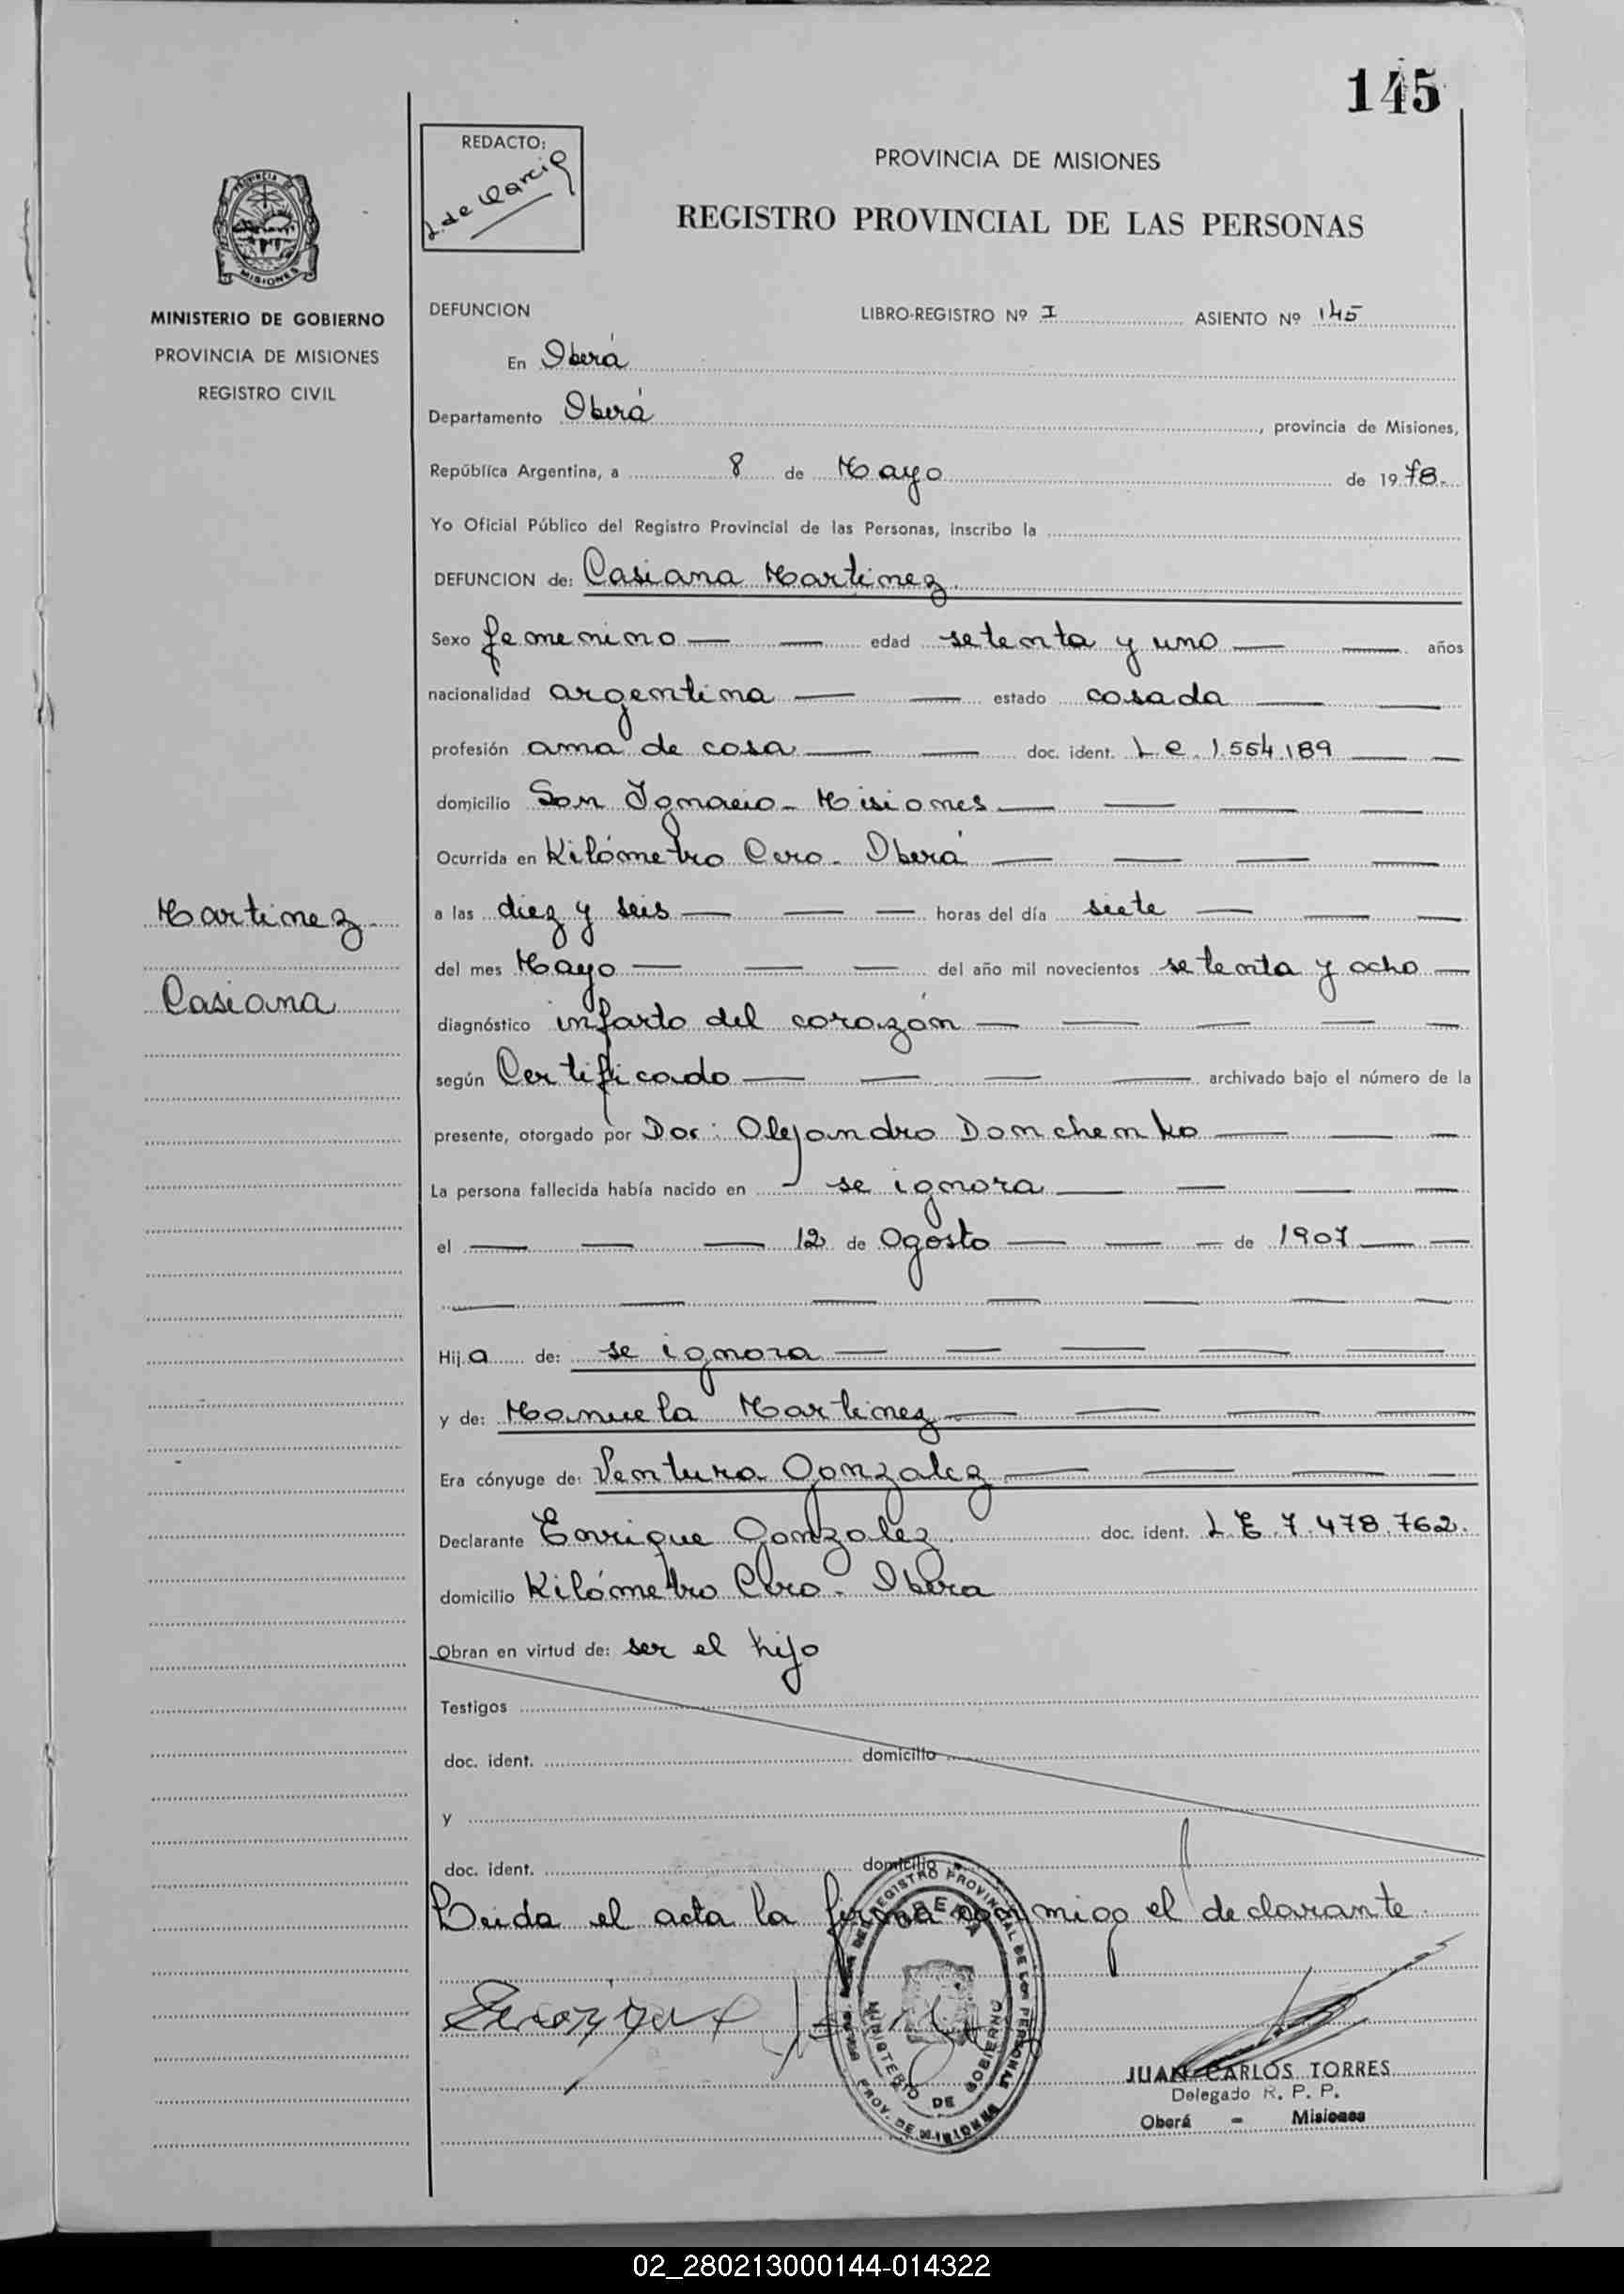 145
REDACTO:
L. de Garcia
PROVINCIA DE MISIONES
REGISTRO PROVINCIAL DE LAS PERSONAS
PROVINCIA DE
MISIONES
MINISTERIO DE GOBIERNO
PROVINCIA DE MISIONES
REGISTRO CIVIL
DEFUNCION LIBRO-REGISTRO Nº I ASIENTO Nº 145
En Oberá
Departamento Oberá, provincia de Misiones,
República Argentina, a 8 de Mayo de 1978.
Yo Oficial Público del Registro Provincial de las Personas, inscribo la
DEFUNCION de: Casiana Martinez.
Sexo femenino — — edad setenta y uno — — años
nacionalidad argentina — — estado casada — —
profesión ama de casa — — doc. ident. L C. 1.554.189 — —
domicilio San Ignacio - Misiones — — — —
Ocurrida en Kilómetro Cero - Oberá — — — —
Martinez
Casiana
a las diez y seis — — — horas del día siete — — —
del mes Mayo — — — del año mil novecientos setenta y ocho —
diagnóstico infarto del corazón — — — — —
según Certificado — — — — archivado bajo el número de la
presente, otorgado por Dor: Alejandro Domchenko — — —
La persona fallecida había nacido en - se ignora — — — —
el — — — 12 de Agosto — — — de 1907 — —
— — — — — — —
Hija de: se ignora — — — — —
y de: Manuela Martinez — — — —
Era cónyuge de: Ventura Gonzalez — — — —
Declarante Enrique Gonzalez. doc. ident. L E 7.478.762.
domicilio Kilómetro Cero - Obera
Obran en virtud de: ser el hijo
Testigos
doc. ident. domicilio
y
doc. ident. domicilio
Leida el acta la firma conmigo el declarante.
Enrique
REGISTRO PROVINCIAL DE LAS PERSONAS
OBERA
MINISTERIO DE GOBIERNO
PROV. DE MISIONES
JUAN CARLOS TORRES
Delegado R. P. P.
Oberá - Misiones
02_280213000144-014322